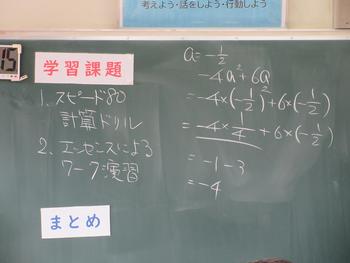 考えよう・話をしよう・行動しよう
15
学習課題
1. スピード80
計算ドリル
2. エッセンスによる
ワーク演習
まとめ
a = -1/2
-4a² + 6a
= -4×(-1/2)² + 6×(-1/2)
= -4×1/4 + 6×(-1/2)
= -1-3
= -4